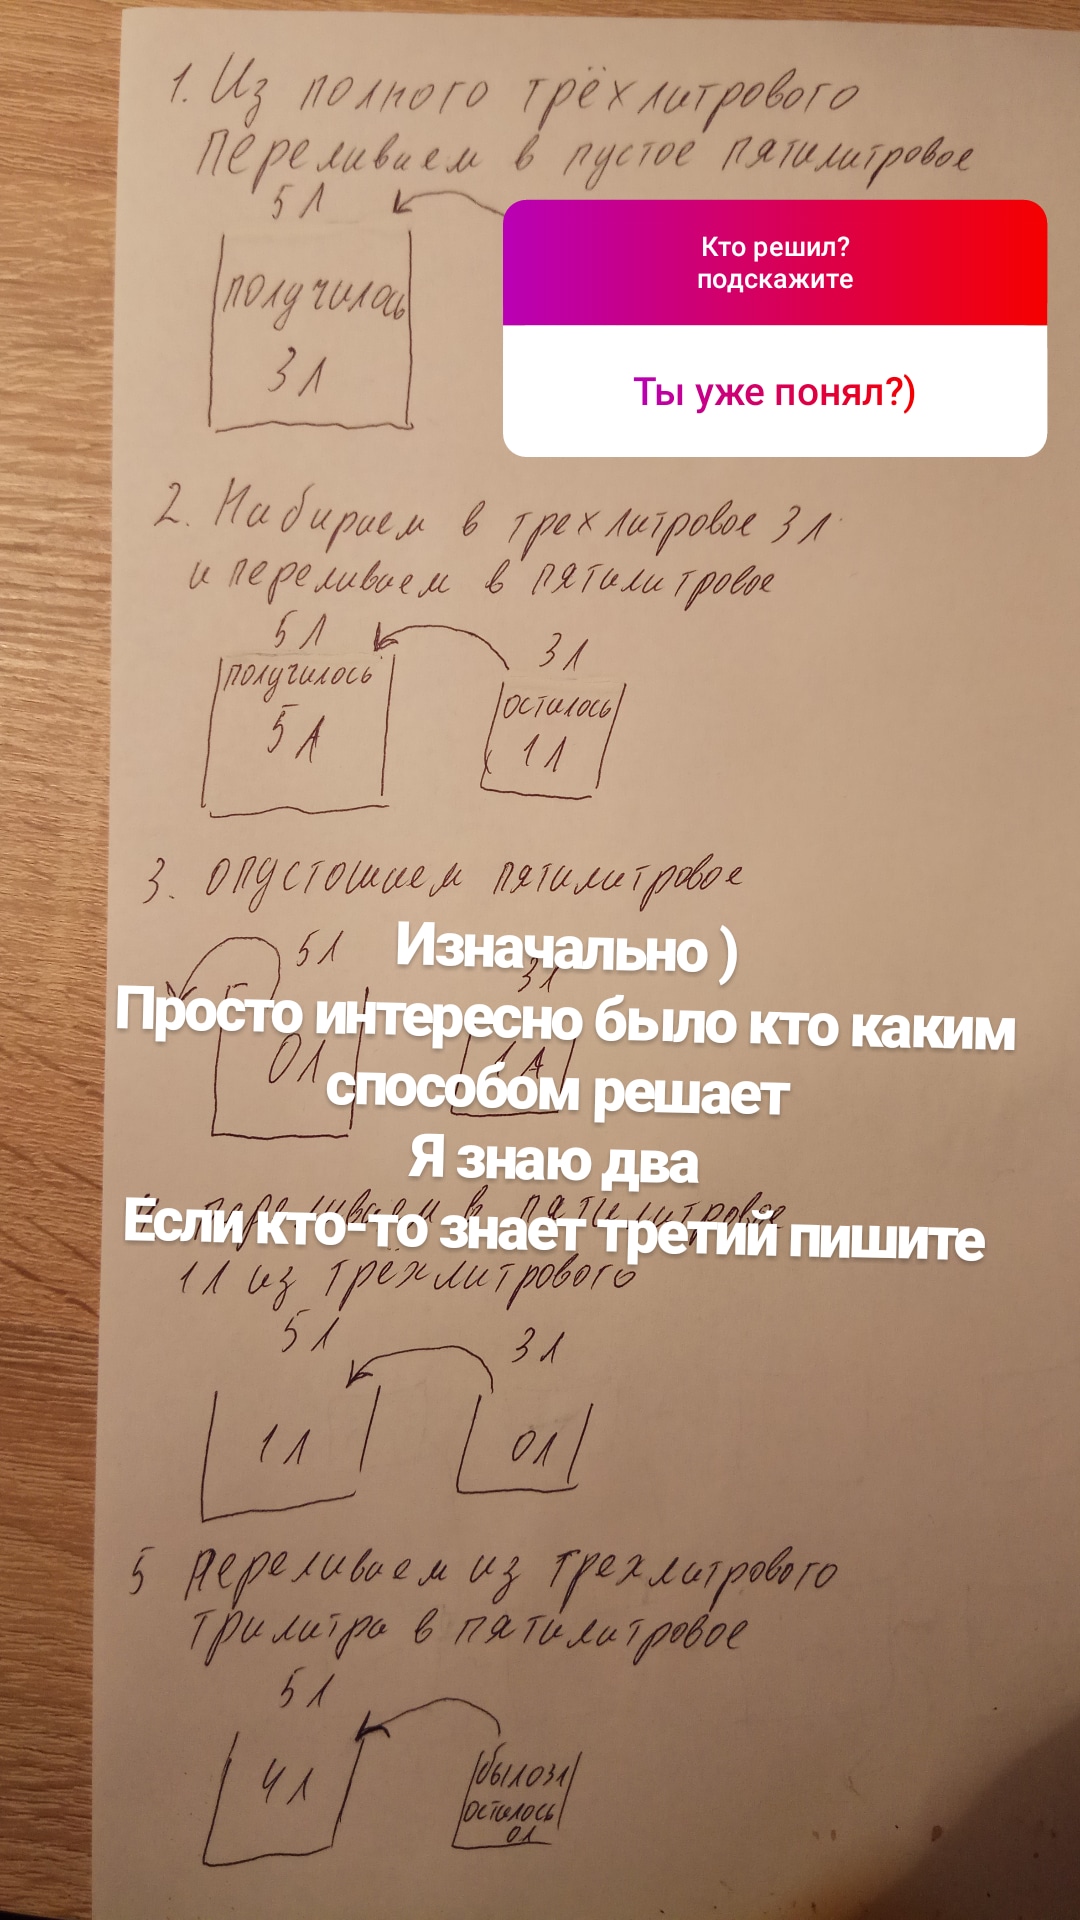 1. Из полного трёхлитрового
переливаем в пустое пятилитровое
5 л
получилось
3 л
Кто решил?
подскажите
Ты уже понял?)
2. Набираем в трехлитровое 3 л
и переливаем в пятилитровое
5 л
3 л
получилось
5 л
осталось
1 л
3. опустошаем пятилитровое
5 л
3 л
0 л
1 л
Изначально )
Просто интересно было кто каким
способом решает
Я знаю два
Если кто-то знает третий пишите
4 переливаем в пятилитровое
1 л из трёхлитрового
5 л
3 л
1 л
0 л
5 переливаем из трехлитрового
трилитра в пятилитровое
5 л
4 л
было 3 л
осталось
0 л